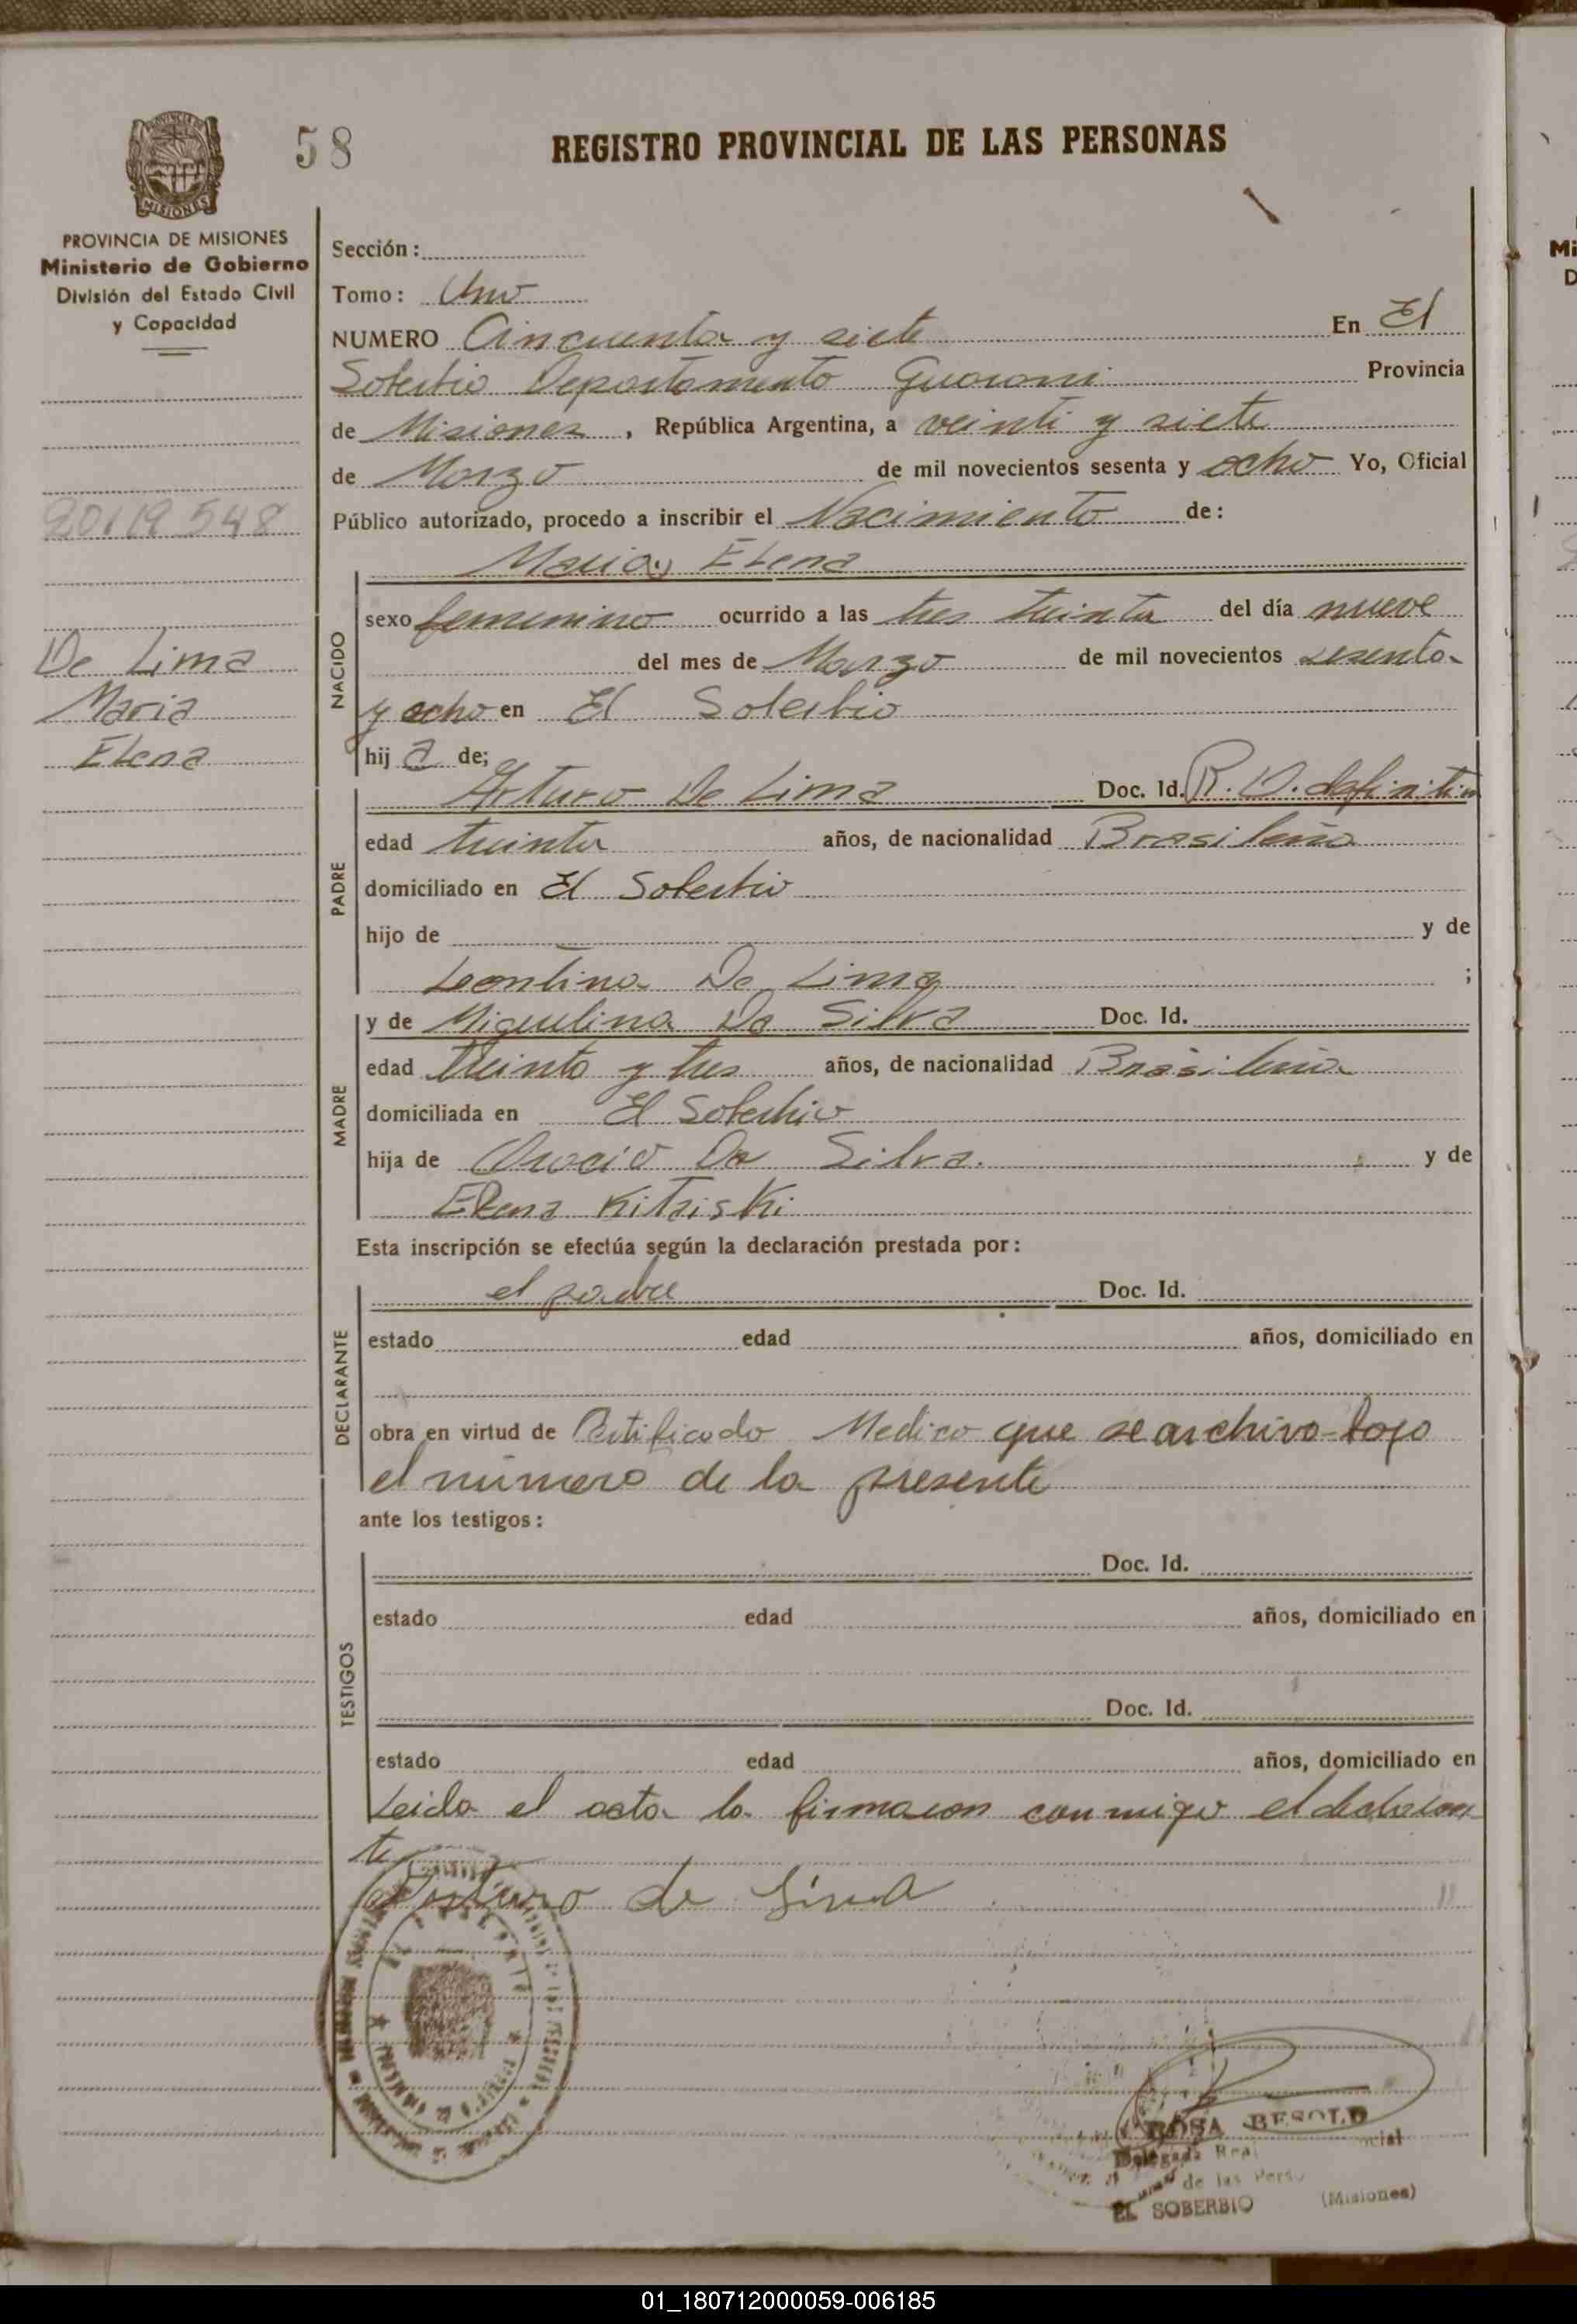 58
REGISTRO PROVINCIAL DE LAS PERSONAS
MISIONES
PROVINCIA DE MISIONES
Ministerio de Gobierno
División del Estado Civil
y Capacidad
20119548
De Lima
Maria
Elena
Sección:
Tomo: Uno
NUMERO Cincuenta y siete En El
Soberbio Departamento Guarani Provincia
de Misiones, República Argentina, a veinti y siete
de Marzo de mil novecientos sesenta y ocho Yo, Oficial
Público autorizado, procedo a inscribir el Nacimiento de:
Maria Elena
NACIDO
sexo femenino ocurrido a las tres treinta del día nueve
del mes de Marzo de mil novecientos sesenta
y ocho en El Soberbio
hij a de;
PADRE
Arturo De Lima Doc. Id. R. D. definitiva
edad treinta años, de nacionalidad Brasileño
domiciliado en El Soberbio
hijo de y de
Leontina De Lima ;
MADRE
y de Miguelina Da Silva Doc. Id.
edad treinta y tres años, de nacionalidad Brasileña
domiciliada en El Soberbio
hija de Oracio Da Silva. y de
Elena Kitaiski
Esta inscripción se efectúa según la declaración prestada por:
DECLARANTE
el padre Doc. Id.
estado edad años, domiciliado en
obra en virtud de Certificado Medico que se archiva bajo
el número de la presente
ante los testigos:
TESTIGOS
Doc. Id.
estado edad años, domiciliado en
Doc. Id.
estado edad años, domiciliado en
Leida el acta la firmaron conmigo el declaran
te
Arturo de Lima
ROSA BESOLD
Delegada
de las
EL SOBERBIO (Misiones)
01_180712000059-006185